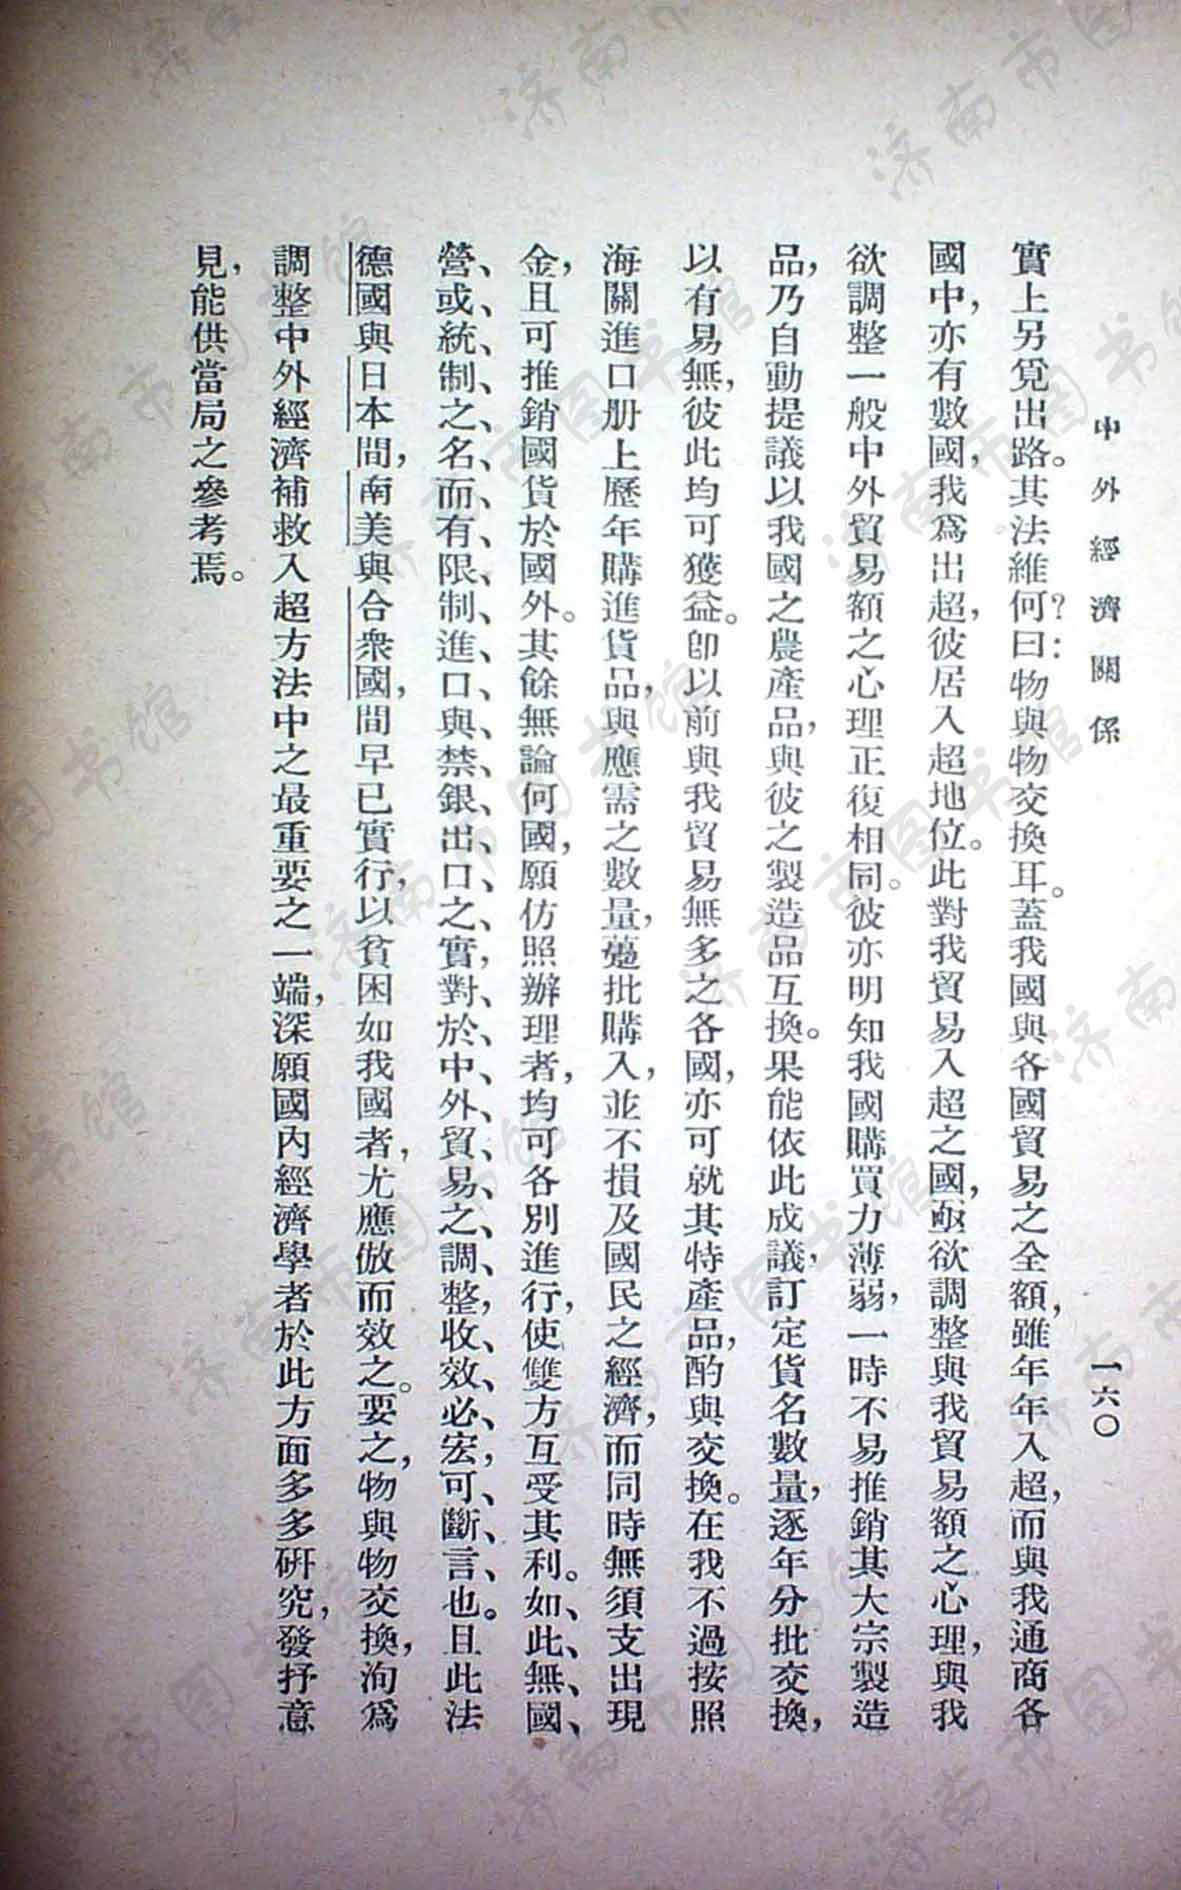 中外經濟關係
一六〇
實上另覓出路。其法維何?曰:物與物交換耳。蓋我國與各國貿易之全額,雖年年入超,而與我通商各
國中,亦有數國,我爲出超,彼居入超地位。此對我貿易入超之國,亟欲調整與我貿易額之心理,與我
欲調整一般中外貿易額之心理正復相同。彼亦明知我國購買力薄弱,一時不易推銷其大宗製造
品,乃自動提議以我國之農產品,與彼之製造品互換。果能依此成議,訂定貨名數量,逐年分批交換,
以有易無,彼此均可獲益。卽以前與我貿易無多之各國,亦可就其特產品,酌與交換。在我不過按照
海關進口册上歷年購進貨品,與應需之數量,躉批購入,並不損及國民之經濟,而同時無須支出現
金,且可推銷國貨於國外。其餘無論何國,願仿照辦理者,均可各別進行,使雙方互受其利。如、此、無、國、
營、或、統、制、之、名、而、有、限、制、進、口、與、禁、銀、出、口、之、實,對、於、中、外、貿、易、之、調、整,收、效、必、宏,可、斷、言、也。且此法
德國與日本間,南美與合衆國,間早已實行,以貧困如我國者,尤應倣而效之。要之,物與物交換,洵爲
調整中外經濟補救入超方法中之最重要之一端,深願國內經濟學者於此方面多多硏究,發抒意
見,能供當局之參考焉。
济南市图书馆